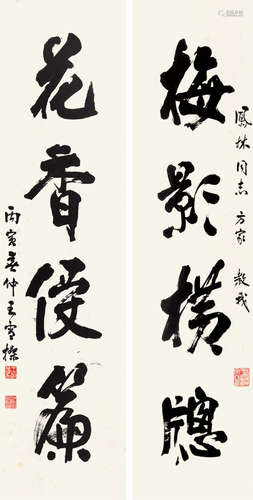 梅影横牕
鳳林同志 方家 教我
花香侵簾
丙寅春仲王雪樵